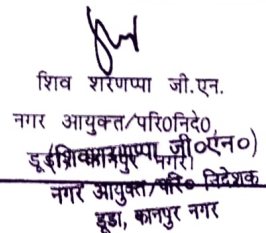 शिव शरणप्पा जी.एन.
नगर आयुक्त/परि0निदे0
डूडा कानपुर नगर।
(शिवशरणप्पा जी०एन०)
नगर आयुक्त/परि० निदेशक
डूडा, कानपुर नगर